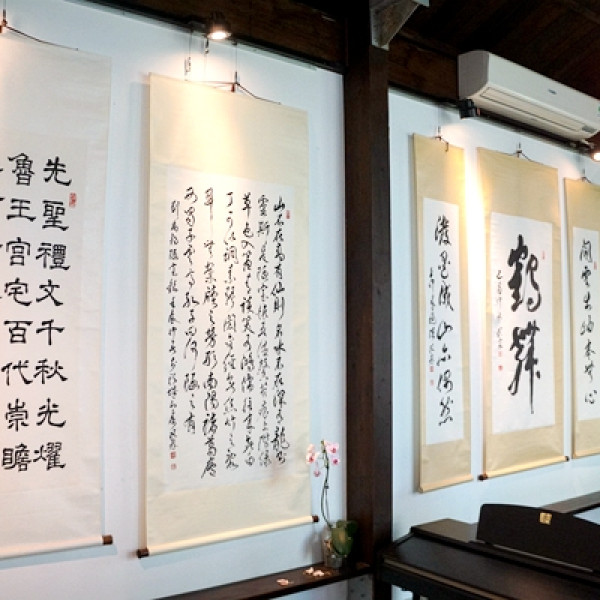 先聖禮文千秋光耀
魯王宮宅百代崇瞻
山不在高有仙則名水不在深有龍則
靈斯是陋室惟吾德馨苔痕上階綠
草色入簾青談笑有鴻儒往來無白
丁可以調素琴閱金經無絲竹之亂
耳無案牘之勞形南陽諸葛廬
西蜀子雲亭孔子云何陋之有
劉禹錫陋室銘
閒雲出岫本無心
鶴舞
潑墨成山亦偶然